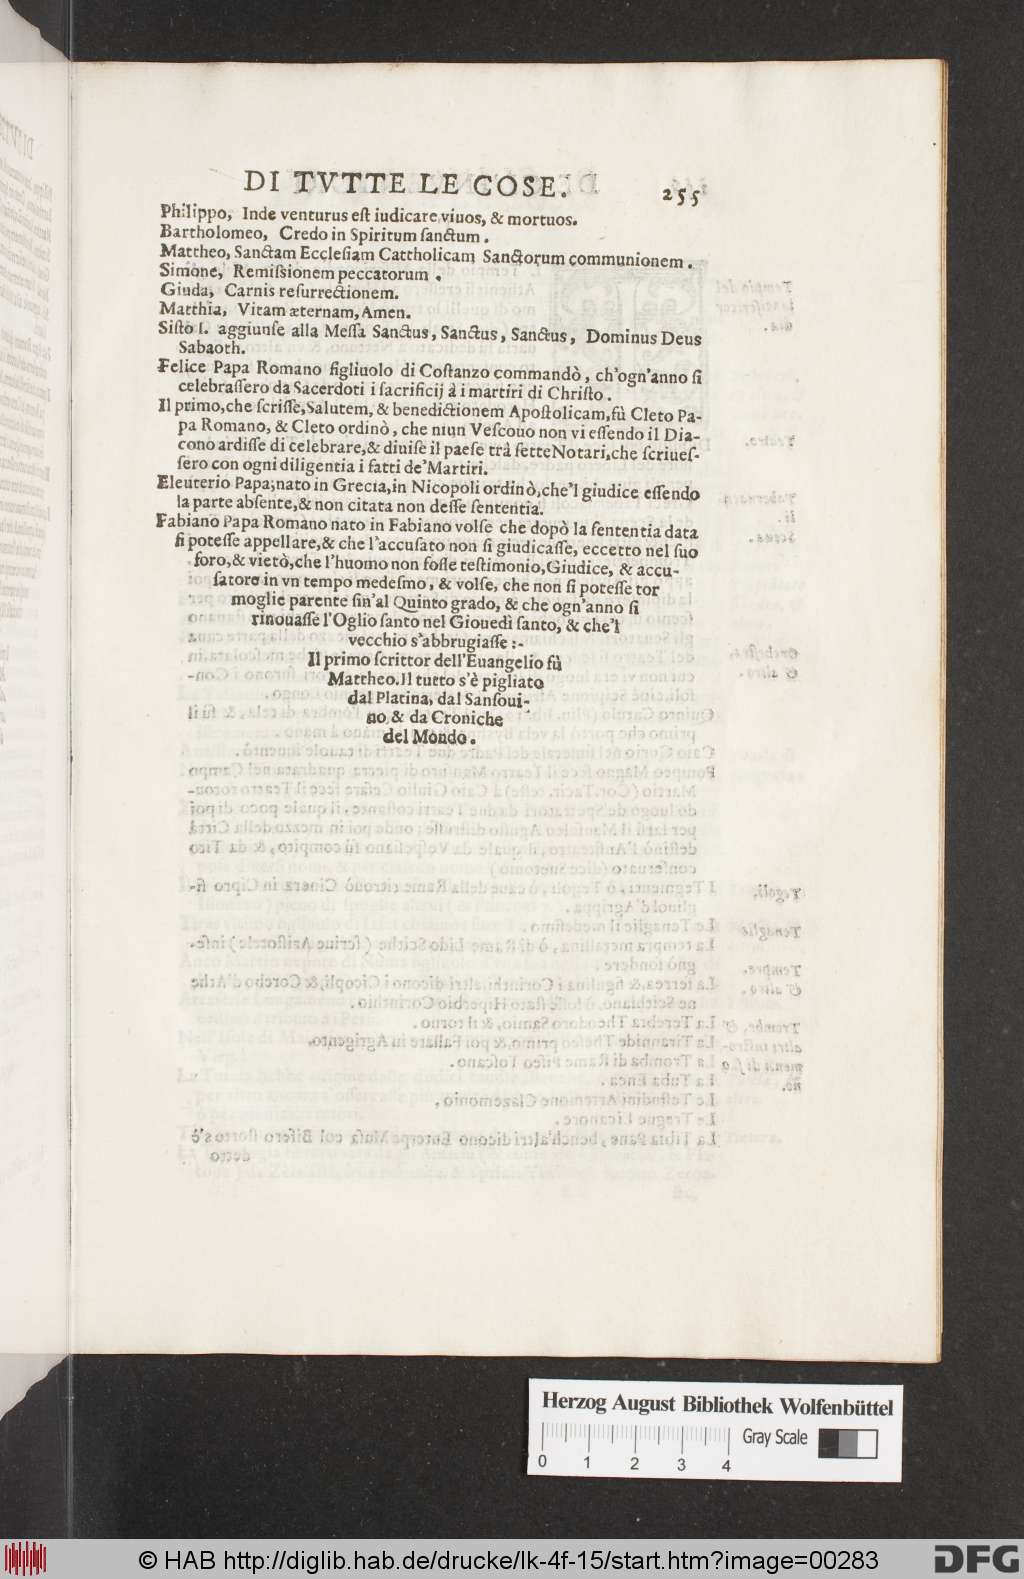 DI TVTTE LE COSE. 255
Philippo, Inde venturus eſt iudicare viuos, & mortuos.
Bartholomeo, Credo in Spiritum ſanctum.
Mattheo, Sanctam Eccleſiam Cattholicam Sanctorum communionem.
Simone, Remiſsionem peccatorum.
Giuda, Carnis reſurrectionem.
Matthia, Vitam æternam, Amen.
Siſto I. aggiunſe alla Meſſa Sanctus, Sanctus, Sanctus, Dominus Deus
Sabaoth.
Felice Papa Romano figliuolo di Coſtanzo commandò, ch'ogn'anno ſi
celebraſſero da Sacerdoti i ſacrificij à i martiri di Chriſto.
Il primo, che ſcriſſe, Salutem, & benedictionem Apoſtolicam, fù Cleto Pa-
pa Romano, & Cleto ordinò, che niun Veſcouo non vi eſſendo il Dia-
cono ardiſſe di celebrare, & diuiſe il paeſe trà ſette Notari, che ſcriueſ-
ſero con ogni diligentia i fatti de'Martiri.
Eleuterio Papa, nato in Grecia, in Nicopoli ordinò, che'l giudice eſſendo
la parte abſente, & non citata non deſſe ſententia.
Fabiano Papa Romano nato in Fabiano volſe che dopò la ſententia data
ſi poteſſe appellare, & che l'accuſato non ſi giudicaſſe, eccetto nel ſuo
foro, & vietò, che l'huomo non foſſe teſtimonio, Giudice, & accu-
ſatore in vn tempo medeſmo, & volſe, che non ſi poteſſe tor
moglie parente ſin'al Quinto grado, & che ogn'anno ſi
rinouaſſe l'Oglio ſanto nel Giouedì ſanto, & che'l
vecchio s'abbrugiaſſe :-
Il primo ſcrittor dell'Euangelio fù
Mattheo. Il tutto s'è pigliato
dal Platina, dal Sanſoui-
no, & da Croniche
del Mondo.
Herzog August Bibliothek Wolfenbüttel
Gray Scale
0 1 2 3 4
© HAB http://diglib.hab.de/drucke/lk-4f-15/start.htm?image=00283
DFG